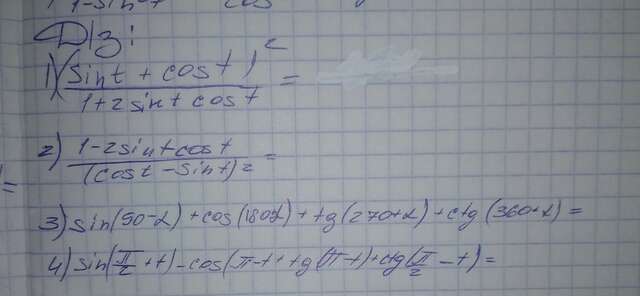 1-sin² cos
Д/з:
1) (sint + cost)² / 1+2sint cost =
2) 1-2sint cost / (cost - sint)2 =
3) sin(90-α) + cos(180-α) + tg(270+α) + ctg(360+α) =
4) sin(π/2 + t) - cos(π-t + tg(π-t) + ctg(π/2 - t) =